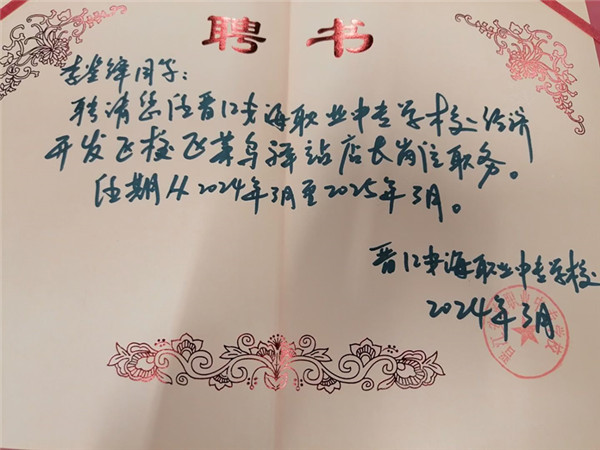 聘书
李莹锋同学:
聘请您任晋江市海职业中专学校经济
开发区校区菜鸟驿站店长岗位职务。
任期从2024年3月至2025年3月。
晋江市海职业中专学校
2024年3月